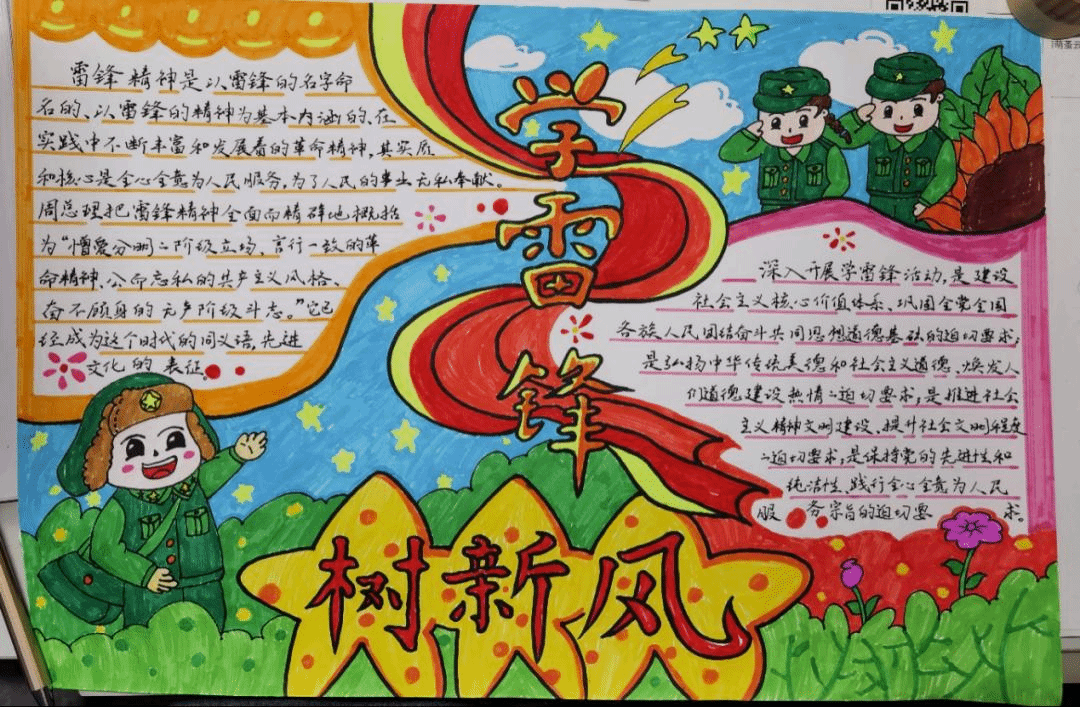 学雷锋
树新风
雷锋精神是以雷锋的名字命
名的、以雷锋的精神为基本内涵的、在
实践中不断丰富和发展着的革命精神,其实质
和核心是全心全意为人民服务,为了人民的事业无私奉献。
周总理把雷锋精神全面而精辟地概括
为“憎爱分明的阶级立场、言行一致的革
命精神、公而忘私的共产主义风格、
奋不顾身的无产阶级斗志。”它已
经成为这个时代的同义语,先进
文化的表征。
深入开展学雷锋活动,是建设
社会主义核心价值体系、巩固全党全国
各族人民团结奋斗共同思想道德基础的迫切要求;
是弘扬中华传统美德和社会主义道德、焕发人
们道德建设热情的迫切要求,是推进社会
主义精神文明建设、提升社会文明程度
的迫切要求;是保持党的先进性和
纯洁性、践行全心全意为人民
服务宗旨的迫切要求。